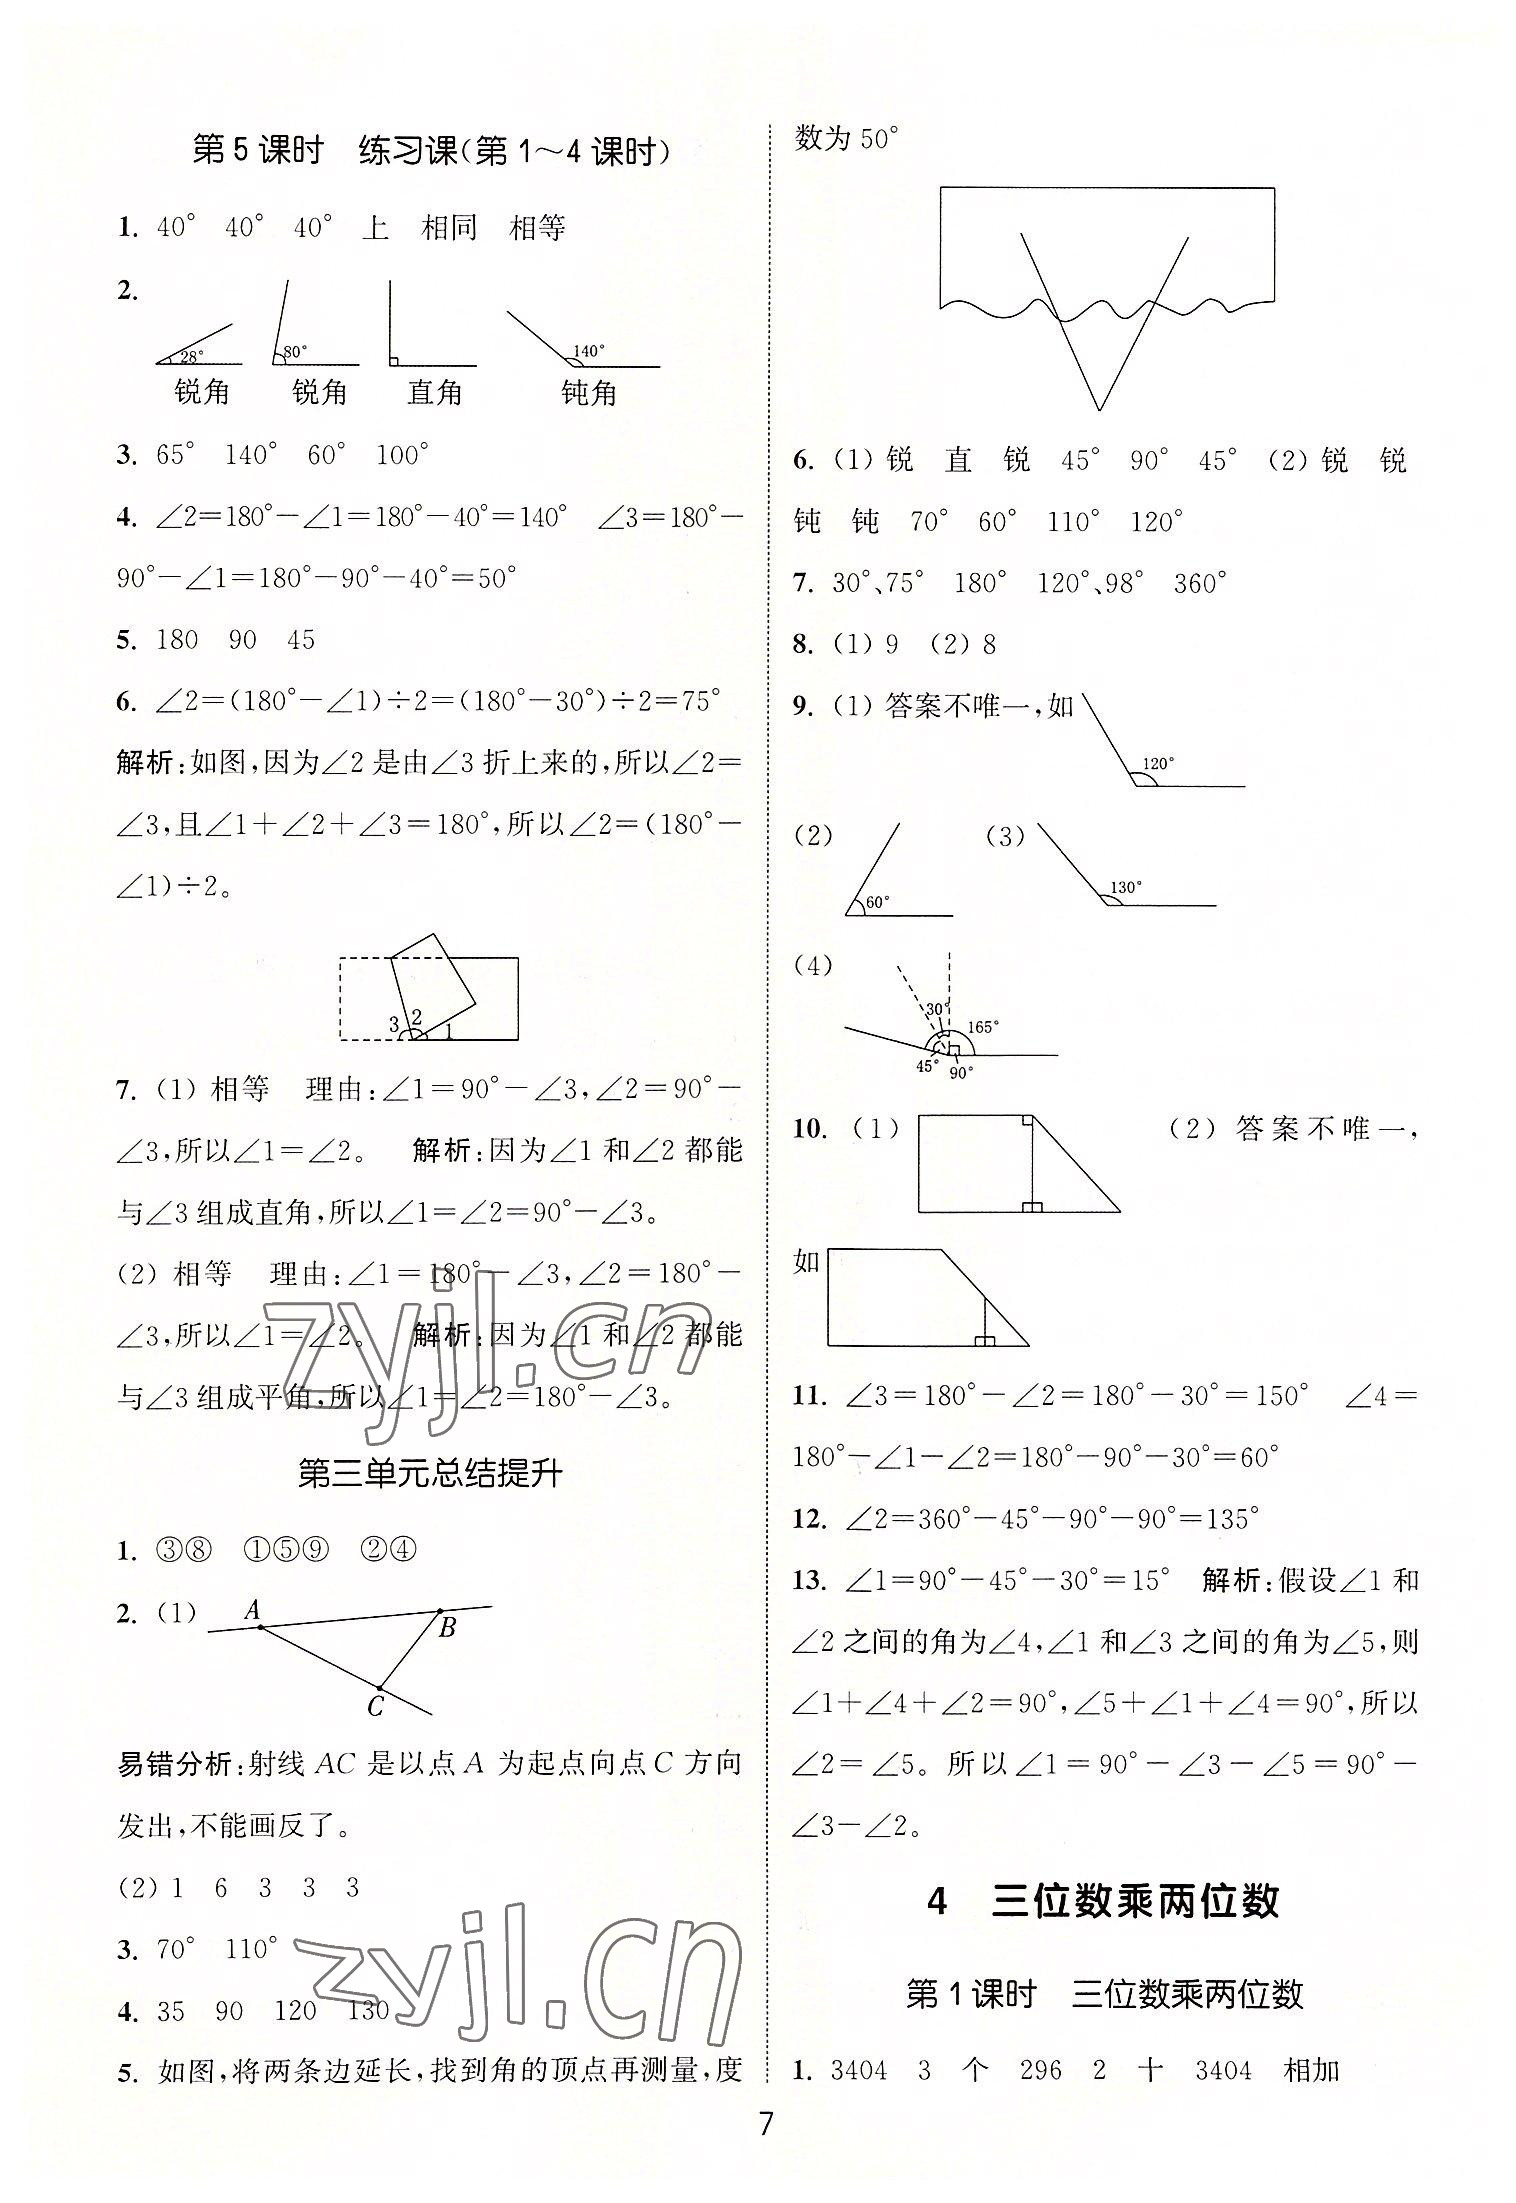 第5课时　练习课(第1～4课时)
1. 40°　40°　40°　上　相同　相等
2.
28°　80°　140°
锐角　锐角　直角　钝角
3. 65°　140°　60°　100°
4. ∠2=180°-∠1=180°-40°=140°　∠3=180°-
90°-∠1=180°-90°-40°=50°
5. 180　90　45
6. ∠2=(180°-∠1)÷2=(180°-30°)÷2=75°
解析:如图,因为∠2是由∠3折上来的,所以∠2=
∠3,且∠1+∠2+∠3=180°,所以∠2=(180°-
∠1)÷2。
3　2　1
7. (1) 相等　理由:∠1=90°-∠3,∠2=90°-
∠3,所以∠1=∠2。　解析:因为∠1和∠2都能
与∠3组成直角,所以∠1=∠2=90°-∠3。
(2) 相等　理由:∠1=180°-∠3,∠2=180°-
∠3,所以∠1=∠2。　解析:因为∠1和∠2都能
与∠3组成平角,所以∠1=∠2=180°-∠3。
zyjl.cn
第三单元总结提升
1. ③⑧　①⑤⑨　②④
2. (1)
A　B
C
易错分析:射线AC是以点A为起点向点C方向
发出,不能画反了。
(2) 1　6　3　3　3
3. 70°　110°
4. 35　90　120　130
zyjl.cn
5. 如图,将两条边延长,找到角的顶点再测量,度
数为50°
6. (1) 锐　直　锐　45°　90°　45°　(2) 锐　锐
钝　钝　70°　60°　110°　120°
7. 30°、75°　180°　120°、98°　360°
8. (1) 9　(2) 8
9. (1) 答案不唯一,如
120°
(2)　(3)
60°　130°
(4)
30°　165°
45°　90°
10. (1)　(2) 答案不唯一,
如
11. ∠3=180°-∠2=180°-30°=150°　∠4=
180°-∠1-∠2=180°-90°-30°=60°
12. ∠2=360°-45°-90°-90°=135°
13. ∠1=90°-45°-30°=15°　解析:假设∠1和
∠2之间的角为∠4,∠1和∠3之间的角为∠5,则
∠1+∠4+∠2=90°,∠5+∠1+∠4=90°,所以
∠2=∠5。所以∠1=90°-∠3-∠5=90°-
∠3-∠2。
4　三位数乘两位数
第1课时　三位数乘两位数
1. 3404　3　个　296　2　十　3404　相加
7